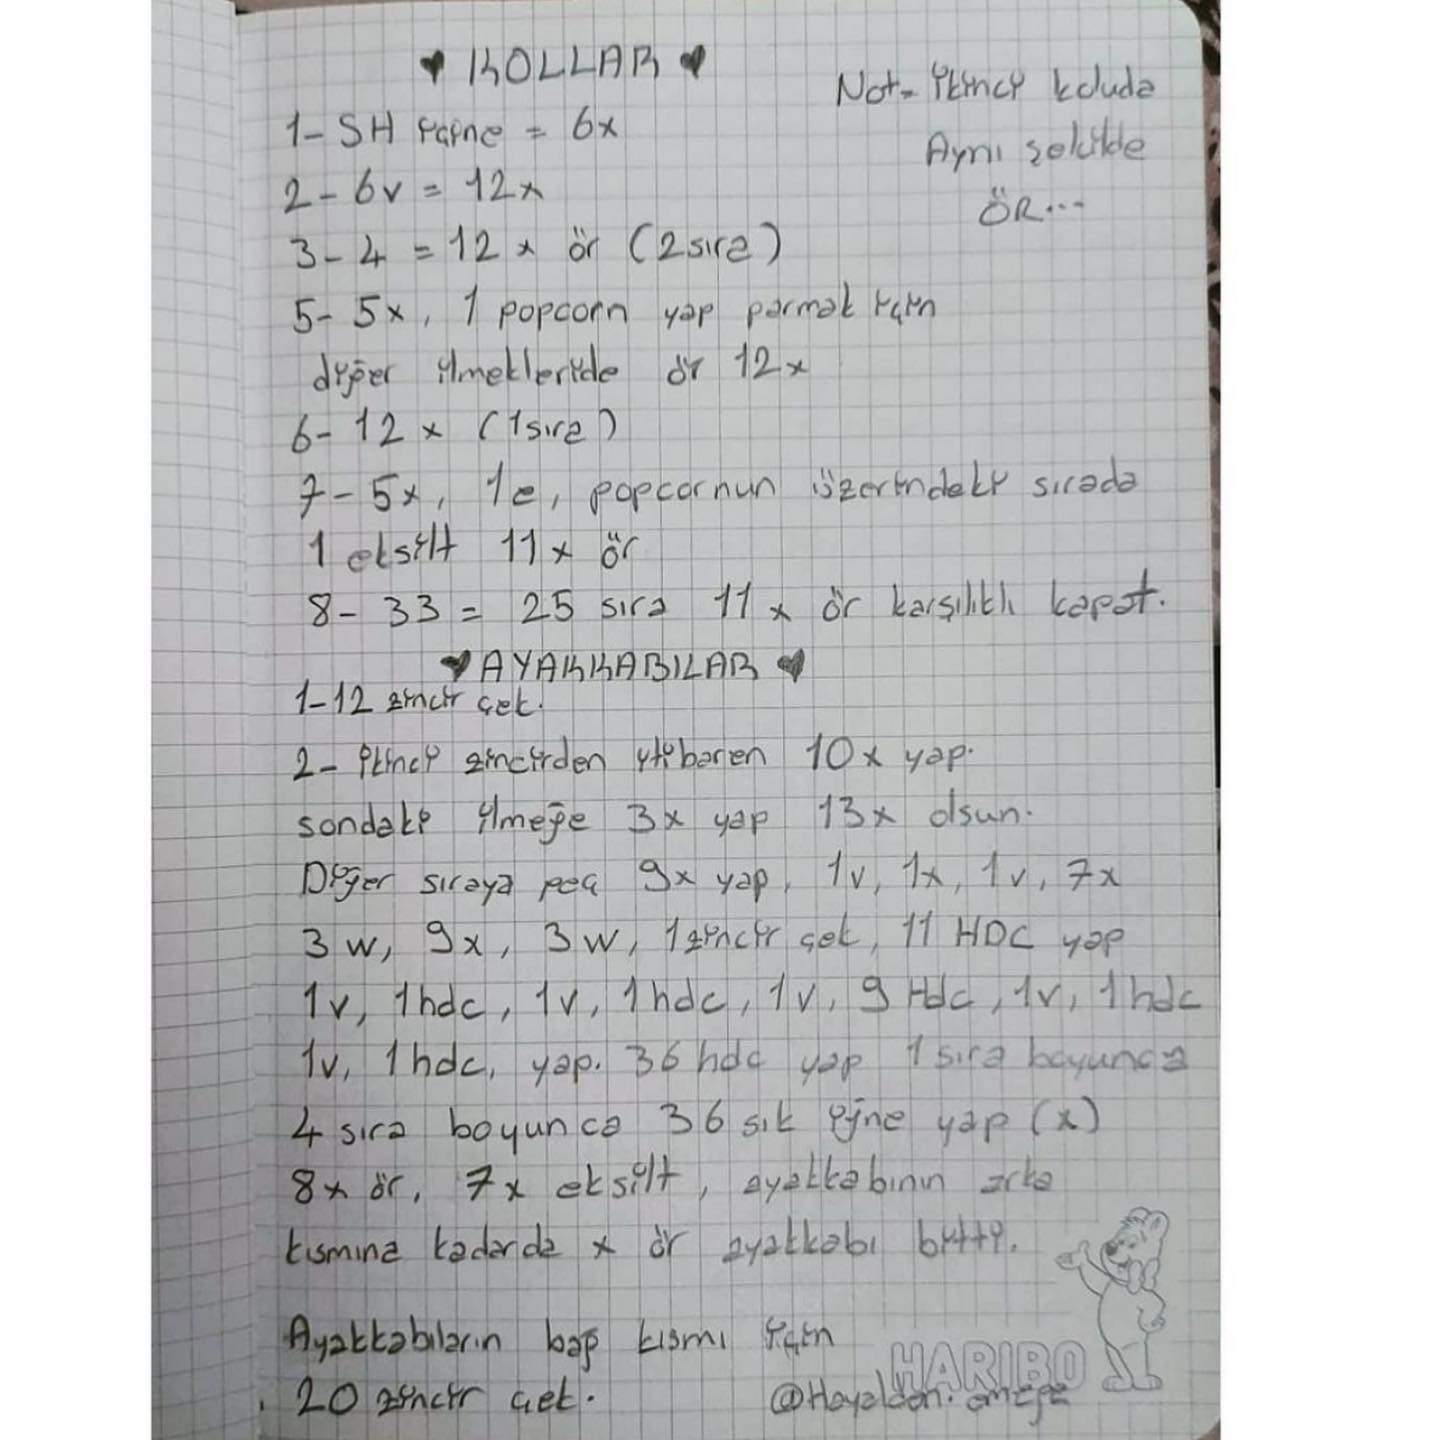 ♥ KOLLAR ♥
Not- ikinci koluda
Aynı şekilde
ÖR...
1- SH içine = 6x
2- 6v = 12x
3- 4 = 12 x ör (2 sıra)
5- 5x, 1 popcorn yap parmak için
diğer ilmekleride ör 12x
6- 12 x (1 sıra)
7- 5x, 1e, popcornun üzerindeki sırada
1 eksilt 11x ör
8- 33 = 25 sıra 11 x ör karşılıklı kapat.
♥ AYAKKABILAR ♥
1-12 zincir çek.
2- ikinci zincirden itibaren 10x yap.
sondaki ilmeğe 3x yap 13x olsun.
Diğer sıraya geç 9x yap, 1v, 1x, 1v, 7x
3 w, 9x, 3 w, 1 zincir çek, 11 HDC yap
1v, 1hdc, 1v, 1hdc, 1v, 9 Hdc, 1v, 1hdc
1v, 1hdc, yap. 36 hdc yap 1 sıra boyunca
4 sıra boyunca 36 sık iğne yap (x)
8x ör, 7x eksilt, ayakkabının arka
kısmına kadarda x ör ayakkabı bitti.
Ayakkabıların bağ kısmı için
20 zincir çek.
HARIBO
@Hayalden.emeğe